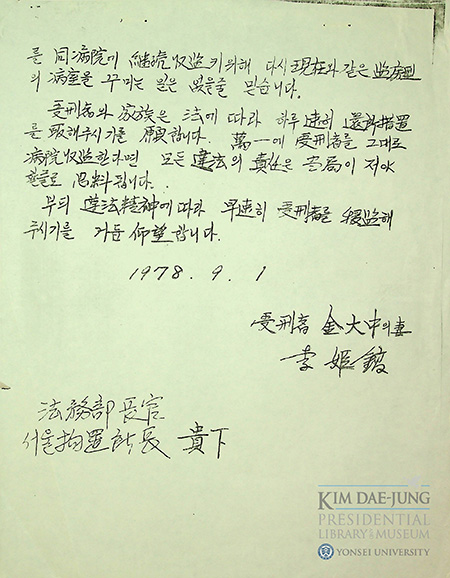 를 同病院에 継続収監키 위해 다시 現在와 같은 監房型
의 病室을 꾸미는 일은 없을줄 믿습니다.
受刑者와 家族은 法에 따라 하루 速히 還所措置
를 取해주시기를 願합니다. 萬一에 受刑者를 그대로
病院収監한다면 모든 違法의 責任은 当局이 져야
할줄로 思料됩니다.
부디 遵法精神에 따라 早速히 受刑者를 移監해
주시기를 거듭 仰望합니다.
1978. 9. 1
受刑者 金大中의 妻
李姬鎬
法務部長官
서울拘置所長 貴下
KIM DAE-JUNG
PRESIDENTIAL
LIBRARY AND MUSEUM
YONSEI UNIVERSITY